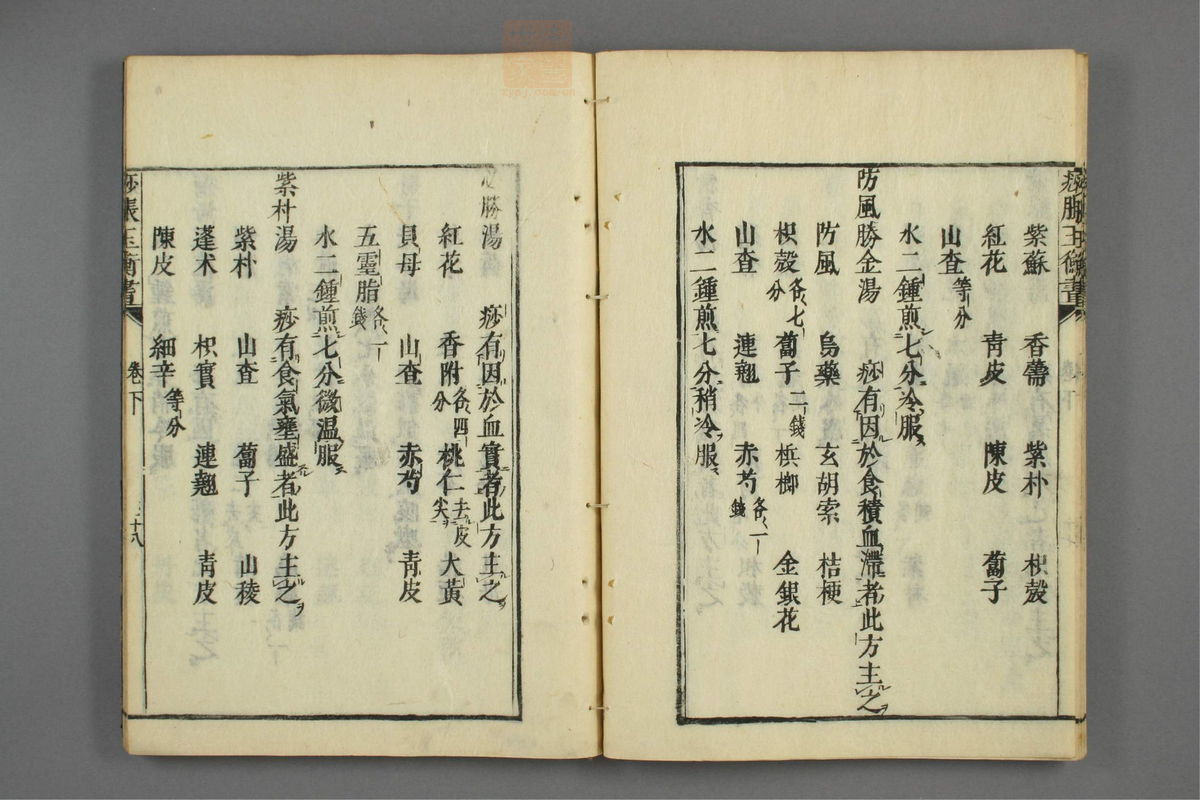 紫蘇 香薷 紫朴 枳殼
紅花 青皮 陳皮 蔔子
山查等分
水二鍾煎七分冷服
防風勝金湯 痧有因於食積血滯者此方主之
防風 烏藥 玄胡索 桔梗
枳殼各七分 蔔子二錢 梹榔 金銀花
山查 連翹 赤芍各一錢
水二鍾煎七分稍冷服
勝湯 痧有因於血實者此方主之
紅花 香附各四分 桃仁去皮尖 大黃
貝母 山查 赤芍 青皮
五靈脂各一錢
水二鍾煎七分微温服
紫朴湯 痧有食氣壅盛者此方主之
紫朴 山查 蔔子 山稜
蓬术 枳實 連翹 青皮
陳皮 細辛等分
痧脹玉衡書 卷下 三十八